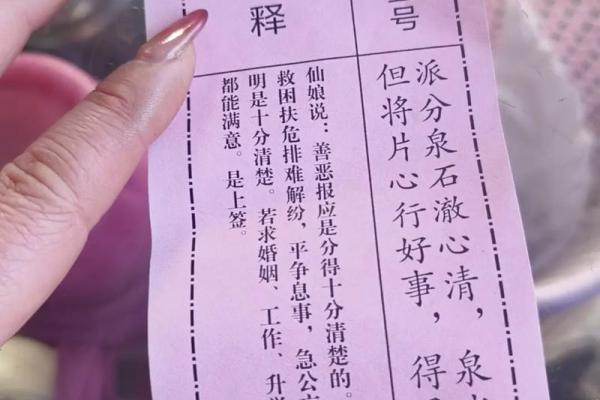 号
派分泉石澈心清，泉
但将片心行好事，得
释
仙娘说：善恶报应是分得十分清楚的。
救困扶危排难解纷，平争息事，急公
明是十分清楚。若求婚姻、工作、升
都能满意。是上签。